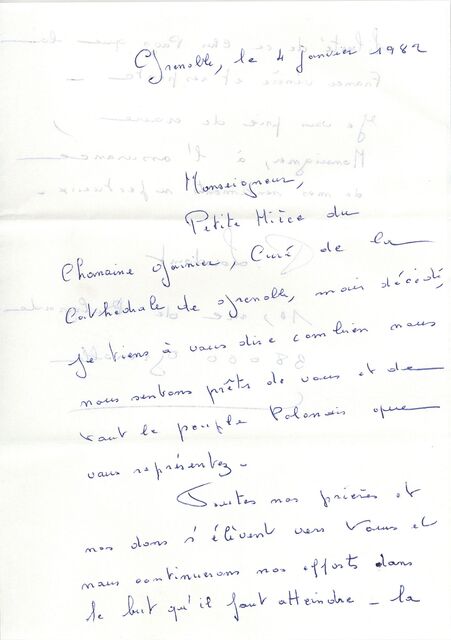 Grenoble, le 4 Janvier 1982
Monseigneur,
Petite Nièce du
Chanoine Garnier, Curé de la
Cathédrale de Grenoble, mais décédé,
je tiens à vous dire combien nous
nous sentons prêts de vous et de
tout le peuple Polonais que
vous représentez.
Toutes nos prières et
nos dons s'élèvent vers Vous et
nous continuerons nos efforts dans
le but qu'il faut atteindre - la